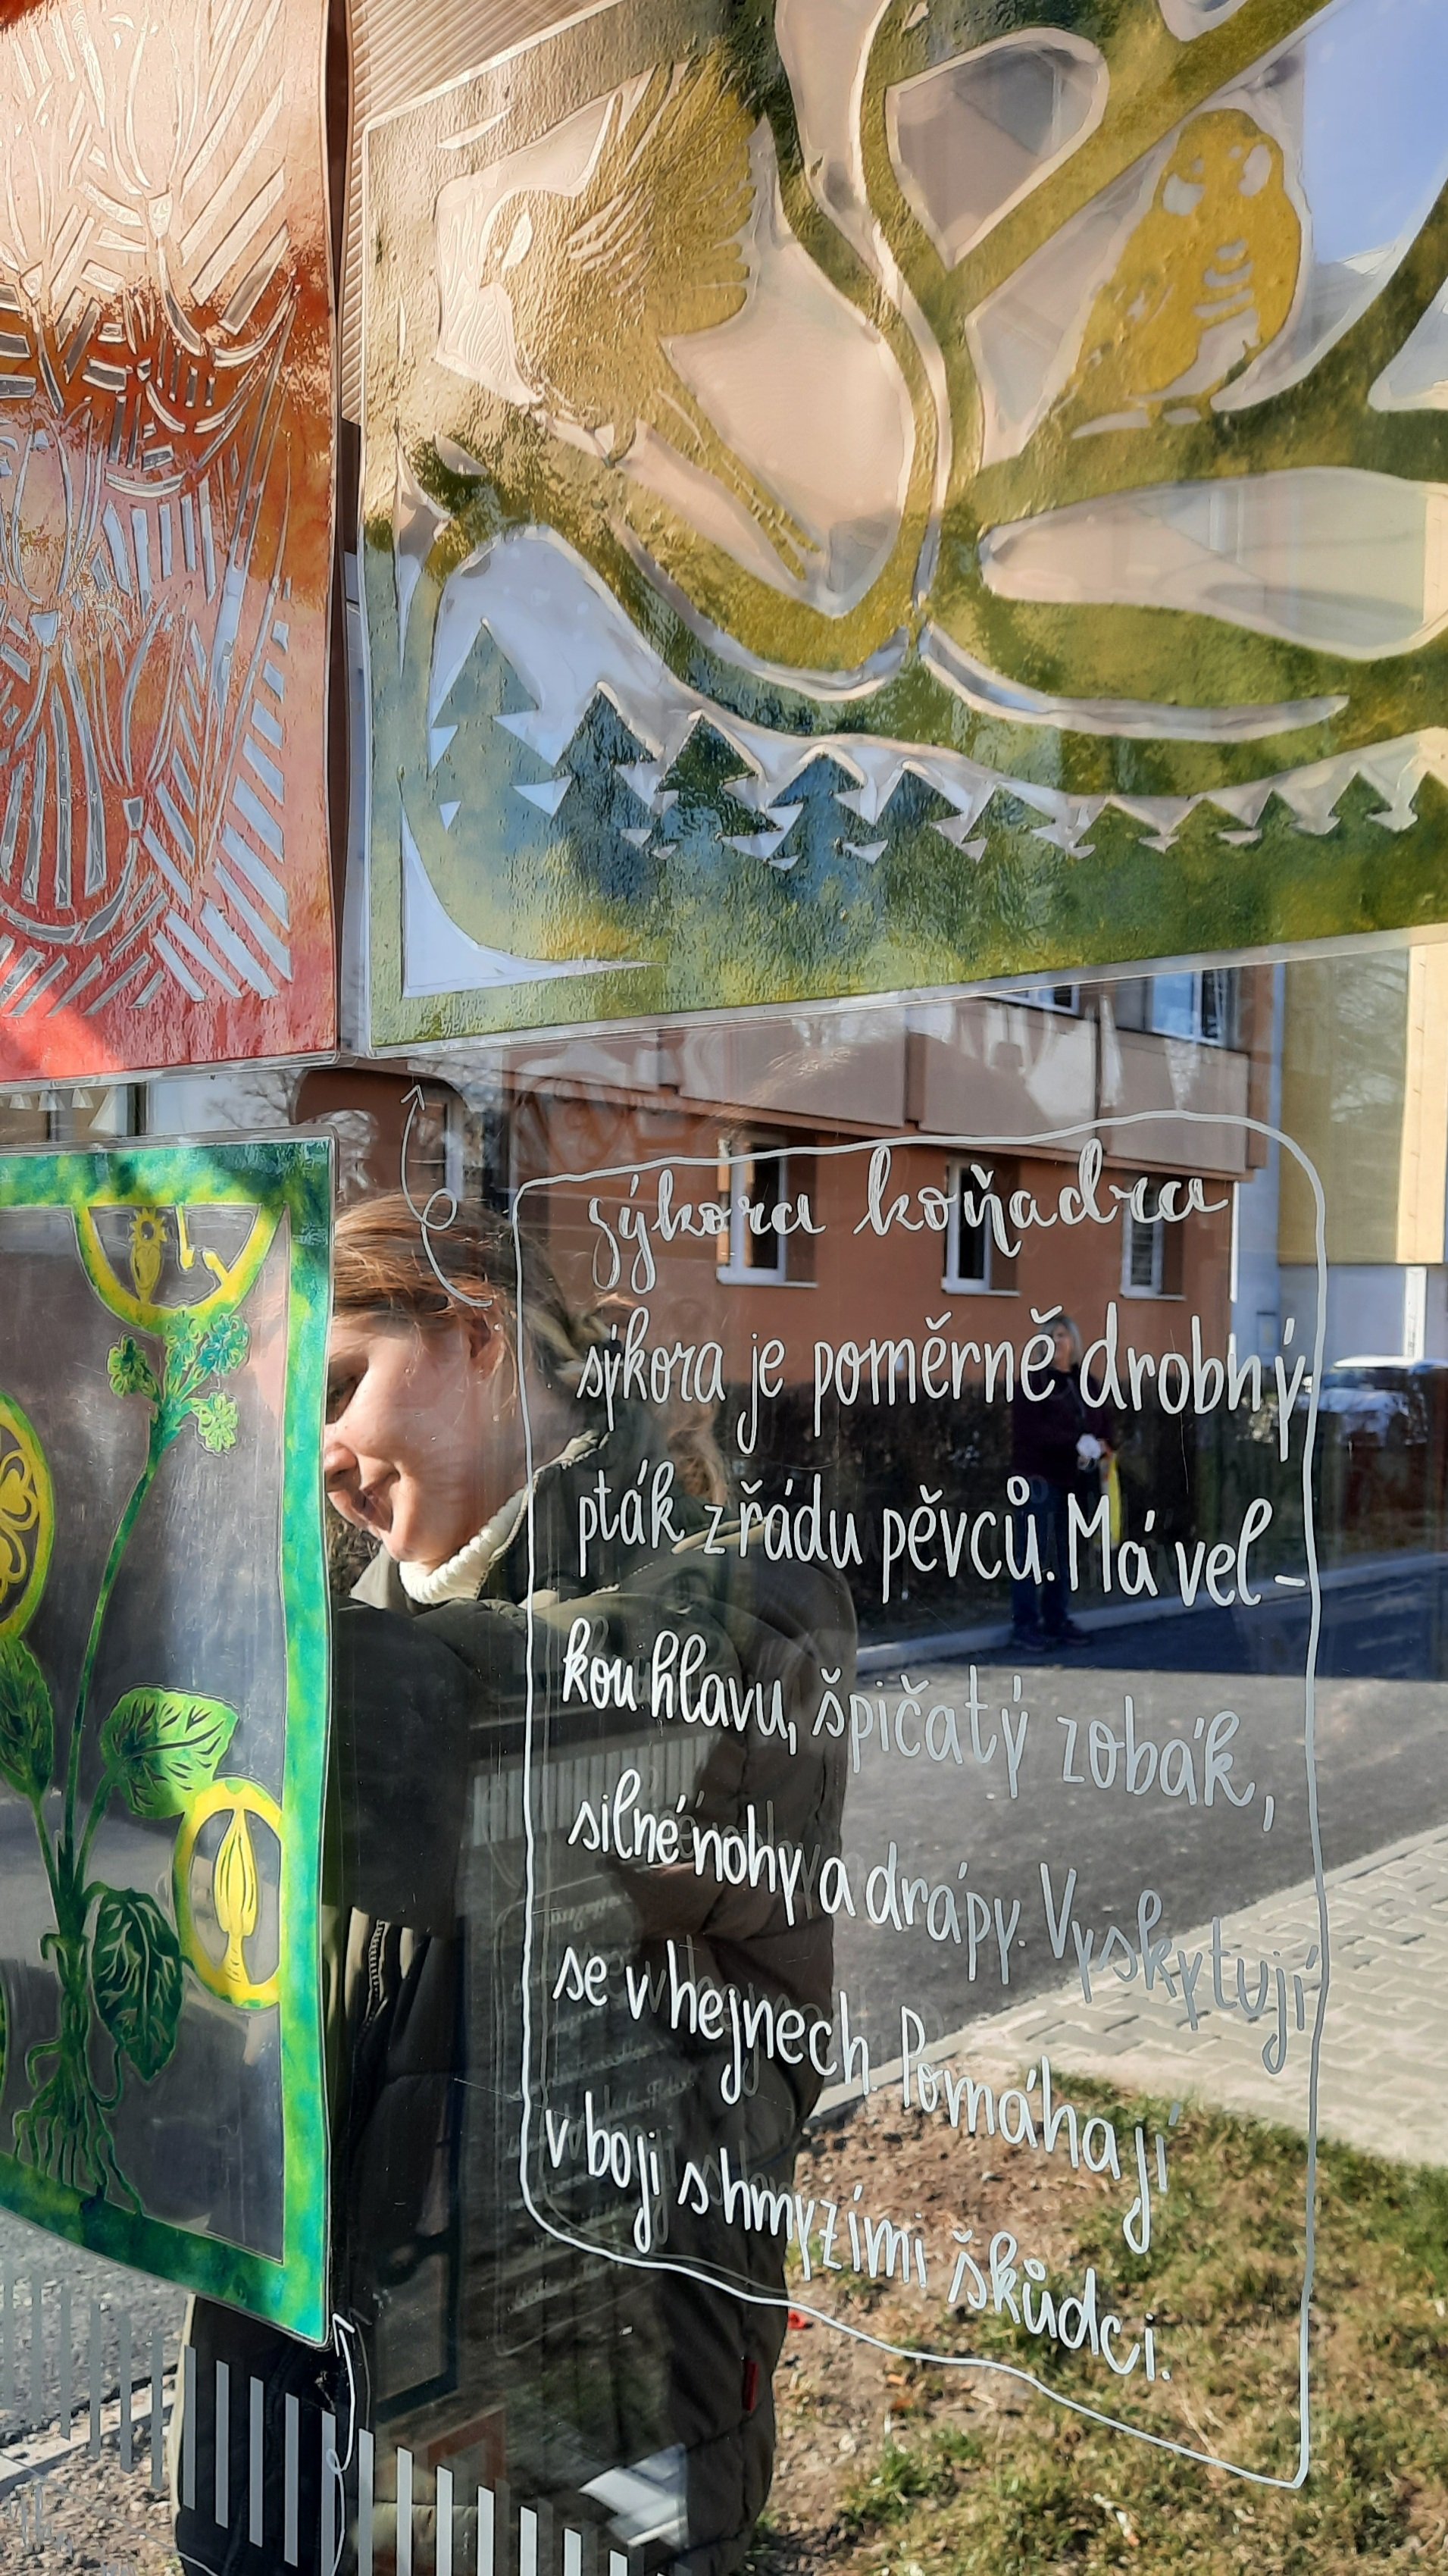 sýkora koňadra
sýkora je poměrně drobný
pták z řádu pěvců. Má vel-
kou hlavu, špičatý zobák,
silné nohy a drápy. Vyskytují
se v hejnech. Pomáhají
v boji s hmyzími škůdci.